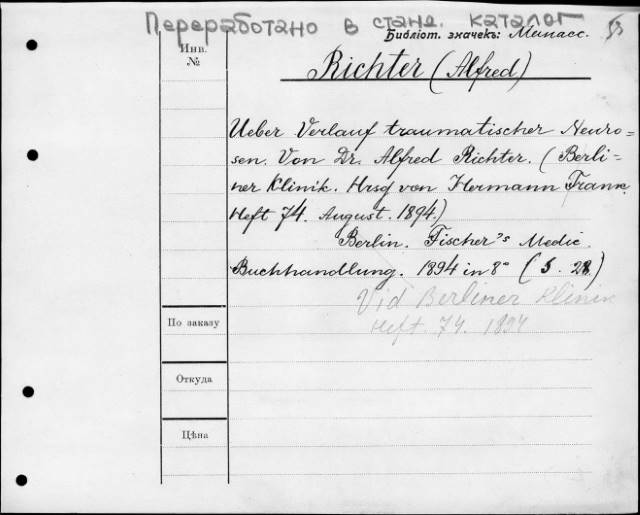 Переработано в станд. каталог
Библіот. значекъ: Манасс.
Инв.
№
Richter (Alfred)
Ueber Verlauf traumatischer Neuro=
sen. Von Dr. Alfred Richter. (Berli=
ner Klinik. Hrsg von Hermann Frank.
Heft 74. August. 1894.)
Berlin. Fischer's Medic.
Buchhandlung. 1894 in 8° (S. 28)
Vid Berliner Klinik
Heft. 74. 1894
По заказу
Откуда
Цѣна